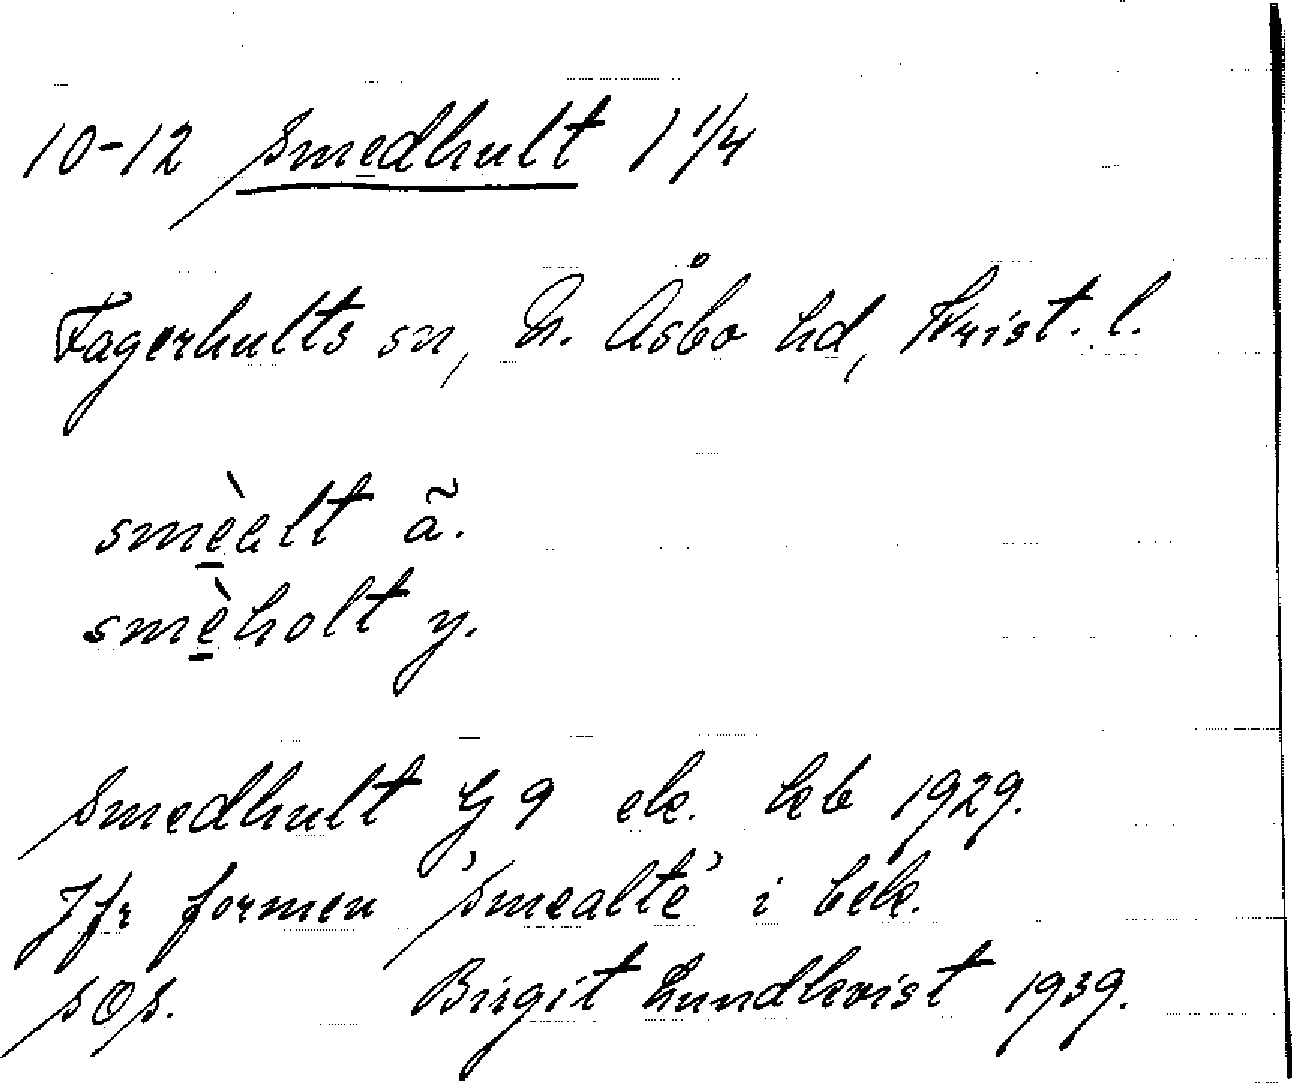 10-12 Smedhult 1 1/4
Fagerhults sn, N. Åsbo hd, Krist. l.
smèalt ã.
smèholt y.
Smedhult G 9 ek. kb 1929.
Jfr formen 'Smealte' i bek.
SOS. Birgit Lundkvist 1939.